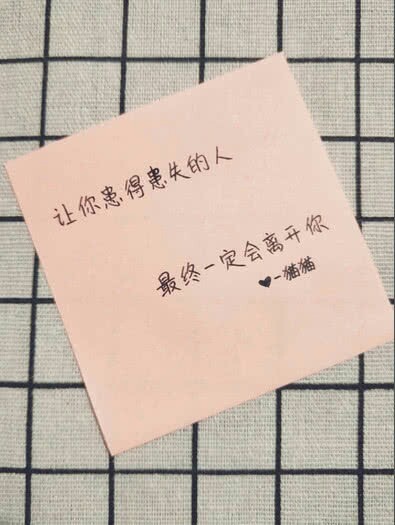 让你患得患失的人
最终一定会离开你
♥-猫猫